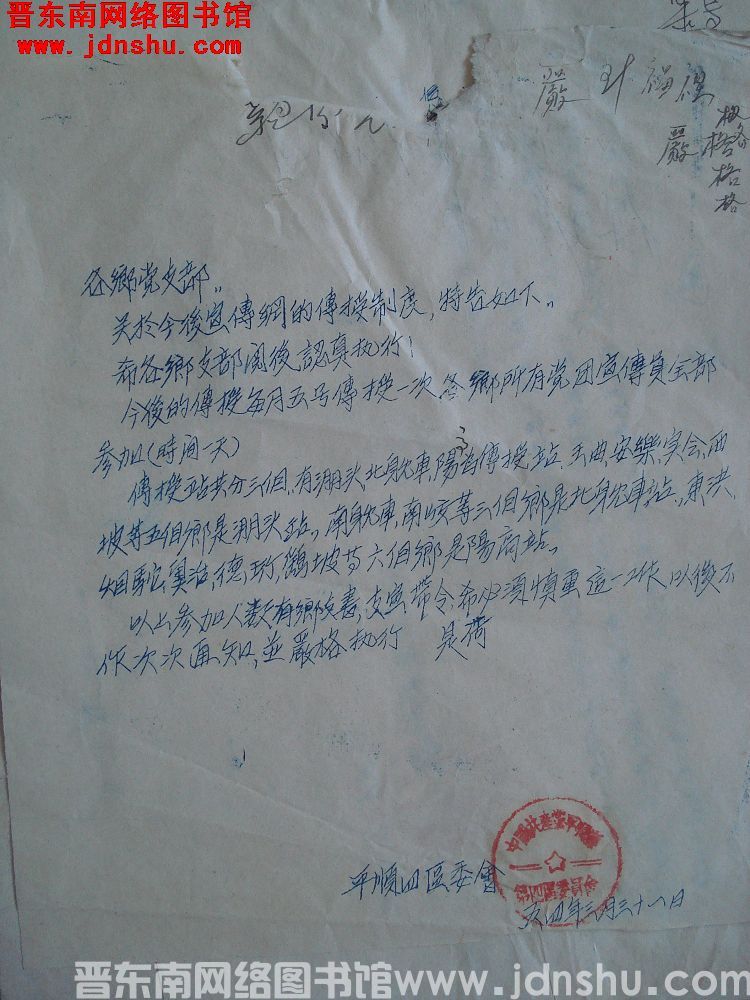 晋东南网络图书馆
www.jdnshu.com
嚴 計
嚴 格
格
格
各鄉党支部..
关於今後宣傳網的傳授制度,特告如下.
希各鄉支部閱後,認真执行:
今後的傳授每月五号傳授一次 各鄉所有党团宣傳員全部
参加(時间一天)
傳授站共分三個,有湖头,北躭車,陽高傳授站 玉曲,安樂,实会,西
坡等五個鄉是湖头站.南躭車,南垓等三個鄉是北躭車站.東洪,
坡等六個鄉是陽高站.
以上参加人数有鄉支書,支宣帶令,希必須慎重這一工作,以後不
作次次通知,並嚴格执行 是荷
平順四區委會
五四年三月三十一日
中國共產黨平順縣
第四區委員會
晋东南网络图书馆www.jdnshu.com